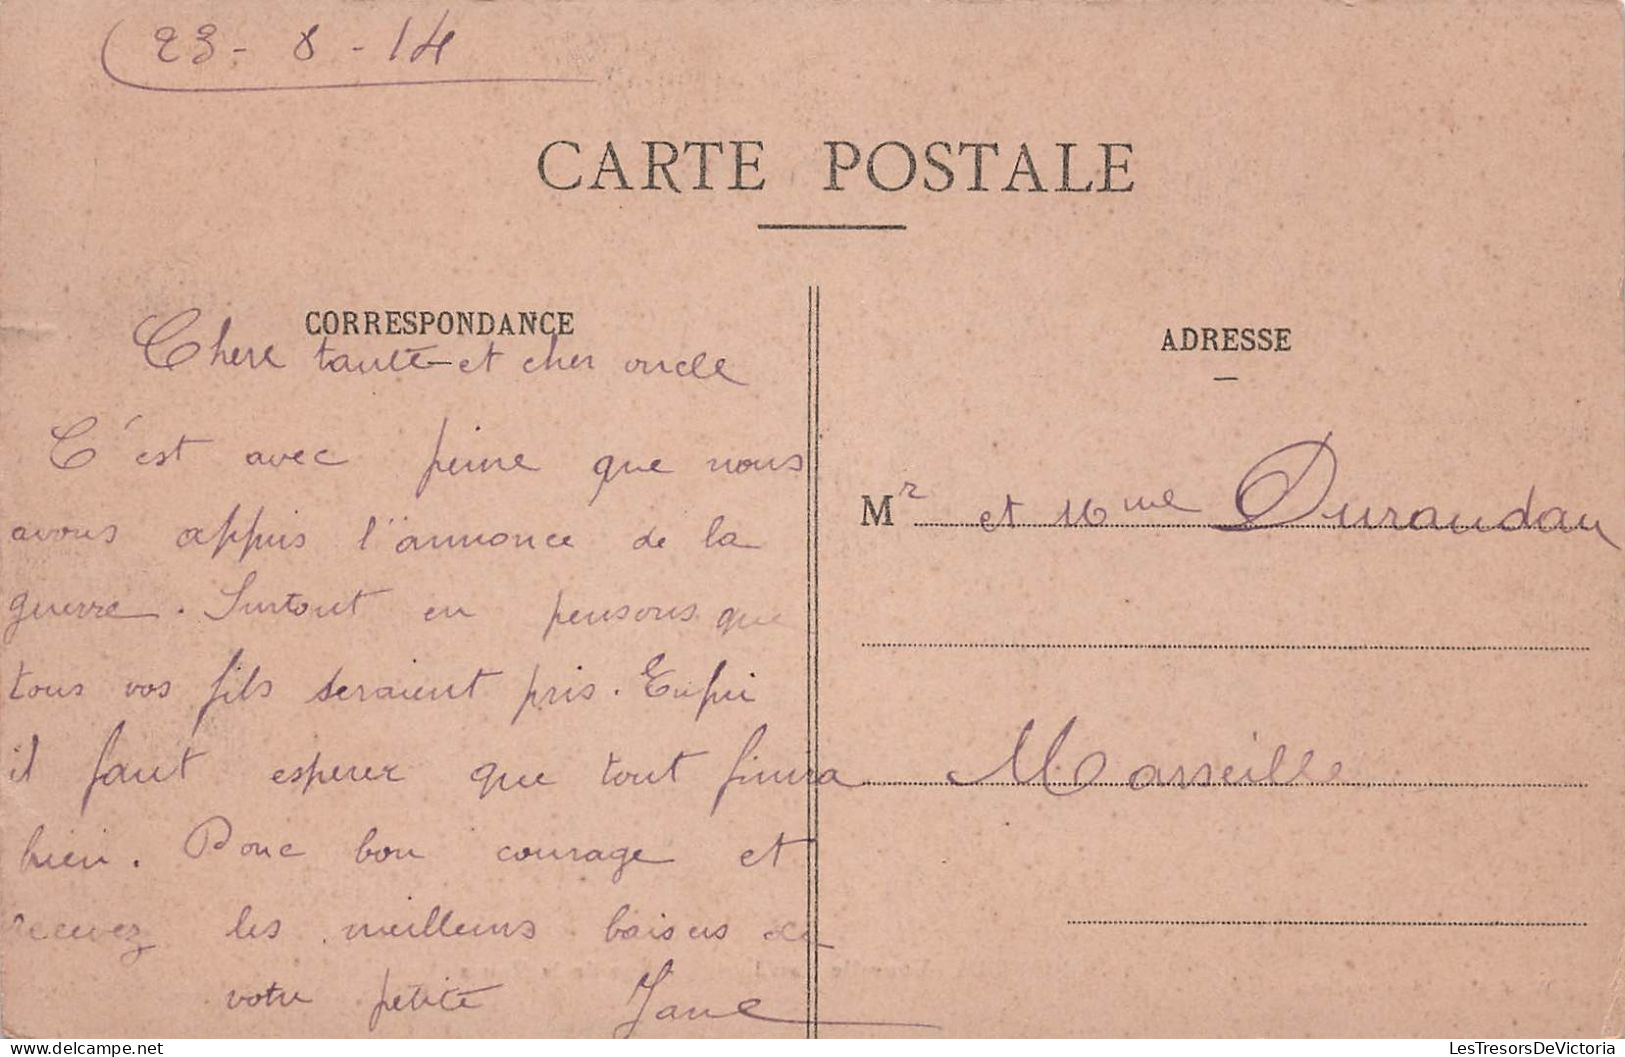 23 - 8 - 14
CARTE POSTALE
CORRESPONDANCE
Chere tante et cher oncle
C'est avec peine que nous
avons appris l'annonce de la
guerre. Surtout en pensons que
tous vos fils seraient pris. Enfin
il faut esperer que tout finira
bien. Donc bon courage et
recevez les meilleurs baisers de
votre petite Jane
ADRESSE
Mr et Mme Durandau
Marseille
LesTresorsDeVictoria
www.delcampe.net